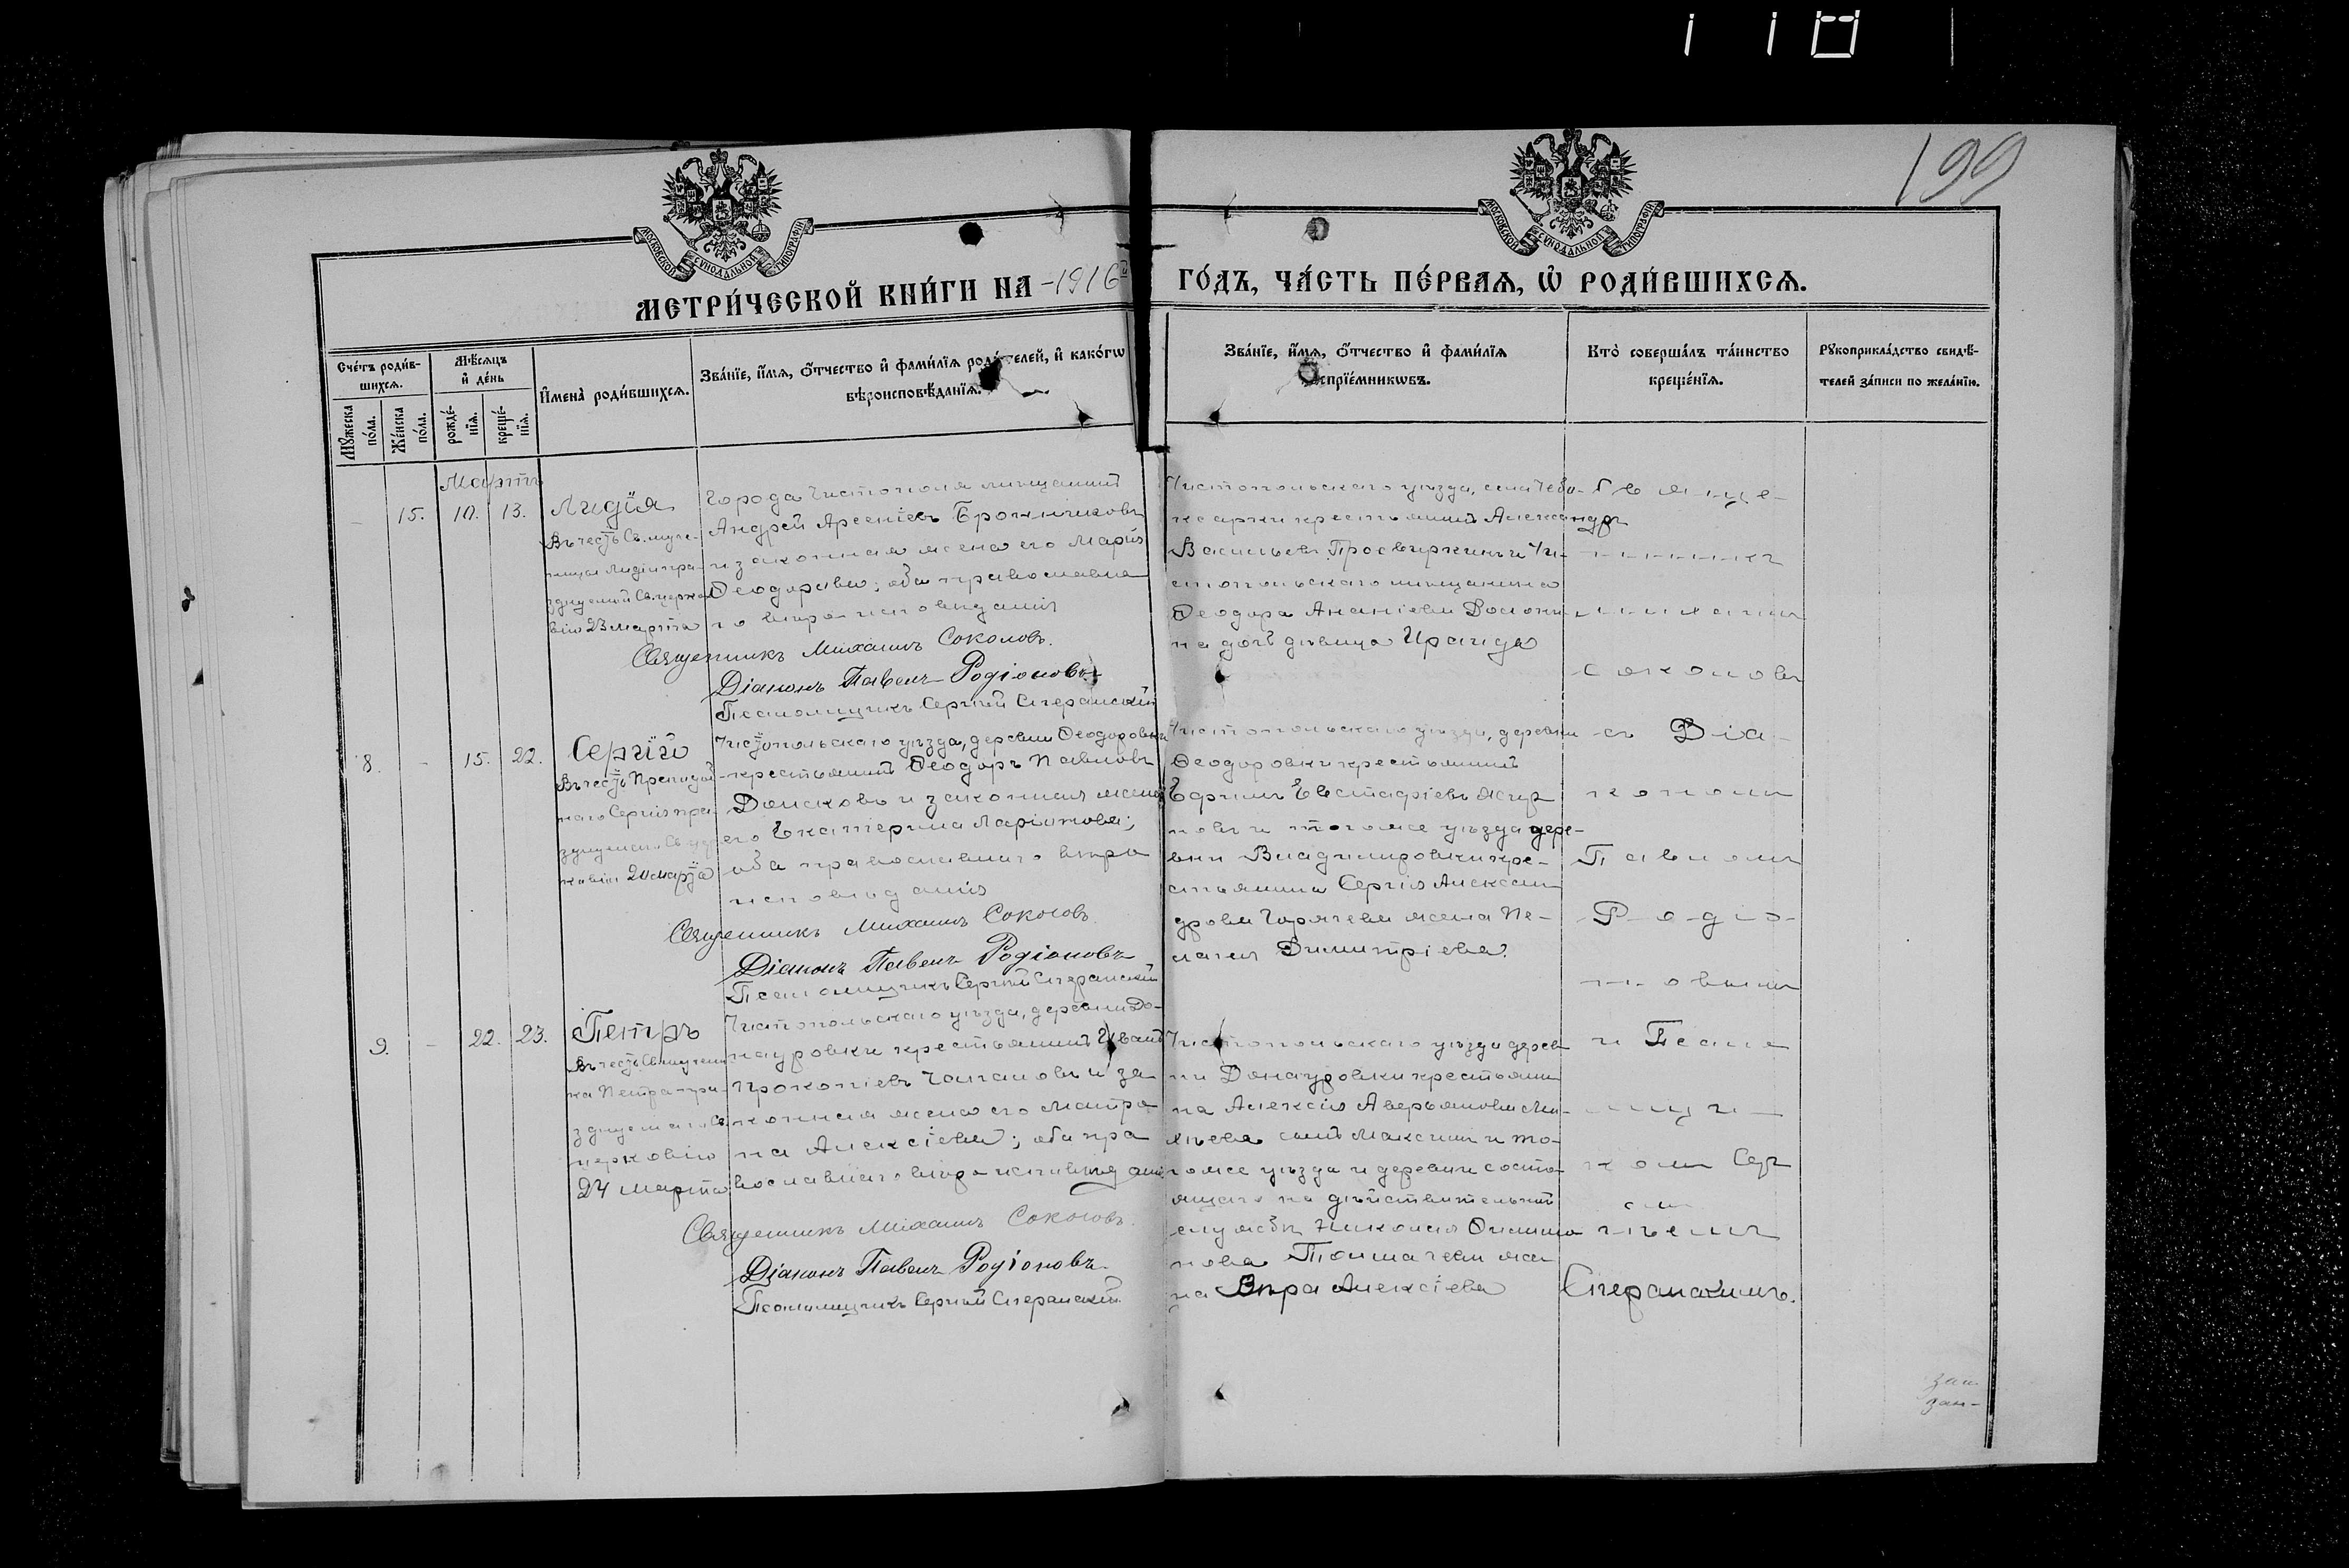 110
199
МОСКОВСКОЙ СѴНОДАЛЬНОЙ ТИПОГРАФІИ
МОСКОВСКОЙ СѴНОДАЛЬНОЙ ТИПОГРАФІИ
МЕТРИ́ЧЕСКОЙ КНИ́ГИ НА -1916й ГО́ДЪ, ЧА́СТЬ ПЕ́РВАЯ, Ѡ҆ РОДИ́ВШИХСЯ.
Сче́тъ роди́в-
шихся.
Мѣ́сяцъ
и҆ де́нь
Мꙋ́жеска
по́ла.
Же́нска
по́ла.
рожде́-
нїя.
креще́-
нїя.
И҆мена̀ роди́вшихся.
Зва́нїе, и҆́мя, ѻ҆́тчество и҆ фами́лїя роди́телей, и҆ како́гѡ
вѣроисповѣ́данїя.
Зва́нїе, и҆́мя, ѻ҆́тчество и҆ фами́лїя
воспрїе́мникѡвъ.
Кто̀ соверша́лъ та́инство
креще́нїя.
Рꙋкоприкла́дство свидѣ́-
телей за́писи по жела́нїю.
Мартъ
- 15. 10. 13.
Лидія
Въ честь Св. муче-
ницы Лидіи пра-
зднуемой Св. церко
вію 23 марта
Города Чистополя мѣщанинъ
Андрей Арсеніевъ Бронниковъ
и законная жена его Марія
Ѳеодорова; оба православна
го вѣроисповѣданія
Священникъ Михаилъ Соколовъ.
Діаконъ Павелъ Родіоновъ
Псаломщикъ Сергій Сперанскій
Чистопольскаго уѣзда, села Чебо-
ксарки крестьянинъ Александръ
Васильевъ Просвиркинъ и Чи-
стопольскаго мѣщанина
Ѳеодора Ананіева
на дочь дѣвица Ираида
Свяще-
нникъ
Михаилъ
Соколовъ
8. - 15. 22.
Сергій
Въ честь Преподоб-
наго Сергія пра-
зднуемаго Св. цер
ковію 20 марта
Чистопольскаго уѣзда, деревни Ѳеодоровки
крестьянинъ Ѳеодоръ Павловъ
Донсковъ и законная жена
его Екатерина Ларіонова;
оба православнаго вѣро
исповѣданія
Священникъ Михаилъ Соколовъ.
Діаконъ Павелъ Родіоновъ
Псаломщикъ Сергій Сперанскій
Чистопольскаго уѣзда, деревни
Ѳеодоровки крестьянинъ
Ефимъ Евстафіевъ
новъ и того же уѣзда дере-
вни Владимировки кре-
стьянина Сергія Алексан
дрова Горячева жена Пе-
лагея Димитріева.
съ Діа-
кономъ
Павломъ
Родіо-
новымъ
9. - 22. 23.
Петръ
Въ честь Св. мучени
ка Петра пра-
зднуемаго Св.
церковію
24 марта
Чистопольскаго уѣзда, деревни До-
науровки крестьянинъ Иванъ
Прокопіевъ и за
конная жена его Матро
на Алексіева; оба пра
вославнаго вѣроисповѣдані
Священникъ Михаилъ Соколовъ.
Діаконъ Павелъ Родіоновъ.
Псаломщикъ Сергій Сперанскій.
Чистопольскаго уѣзда дерев
ни Донауровки крестьяни
на Алексія Аверьянова Ми-
хѣева сынъ Максимъ и то-
гоже уѣзда и деревни состо-
ящаго на дѣйствительной
службѣ Николая Филимо
нова же
на Вѣра Алексіева
и Псало
мщи-
комъ Сер
гѣемъ
Сперанскимъ.